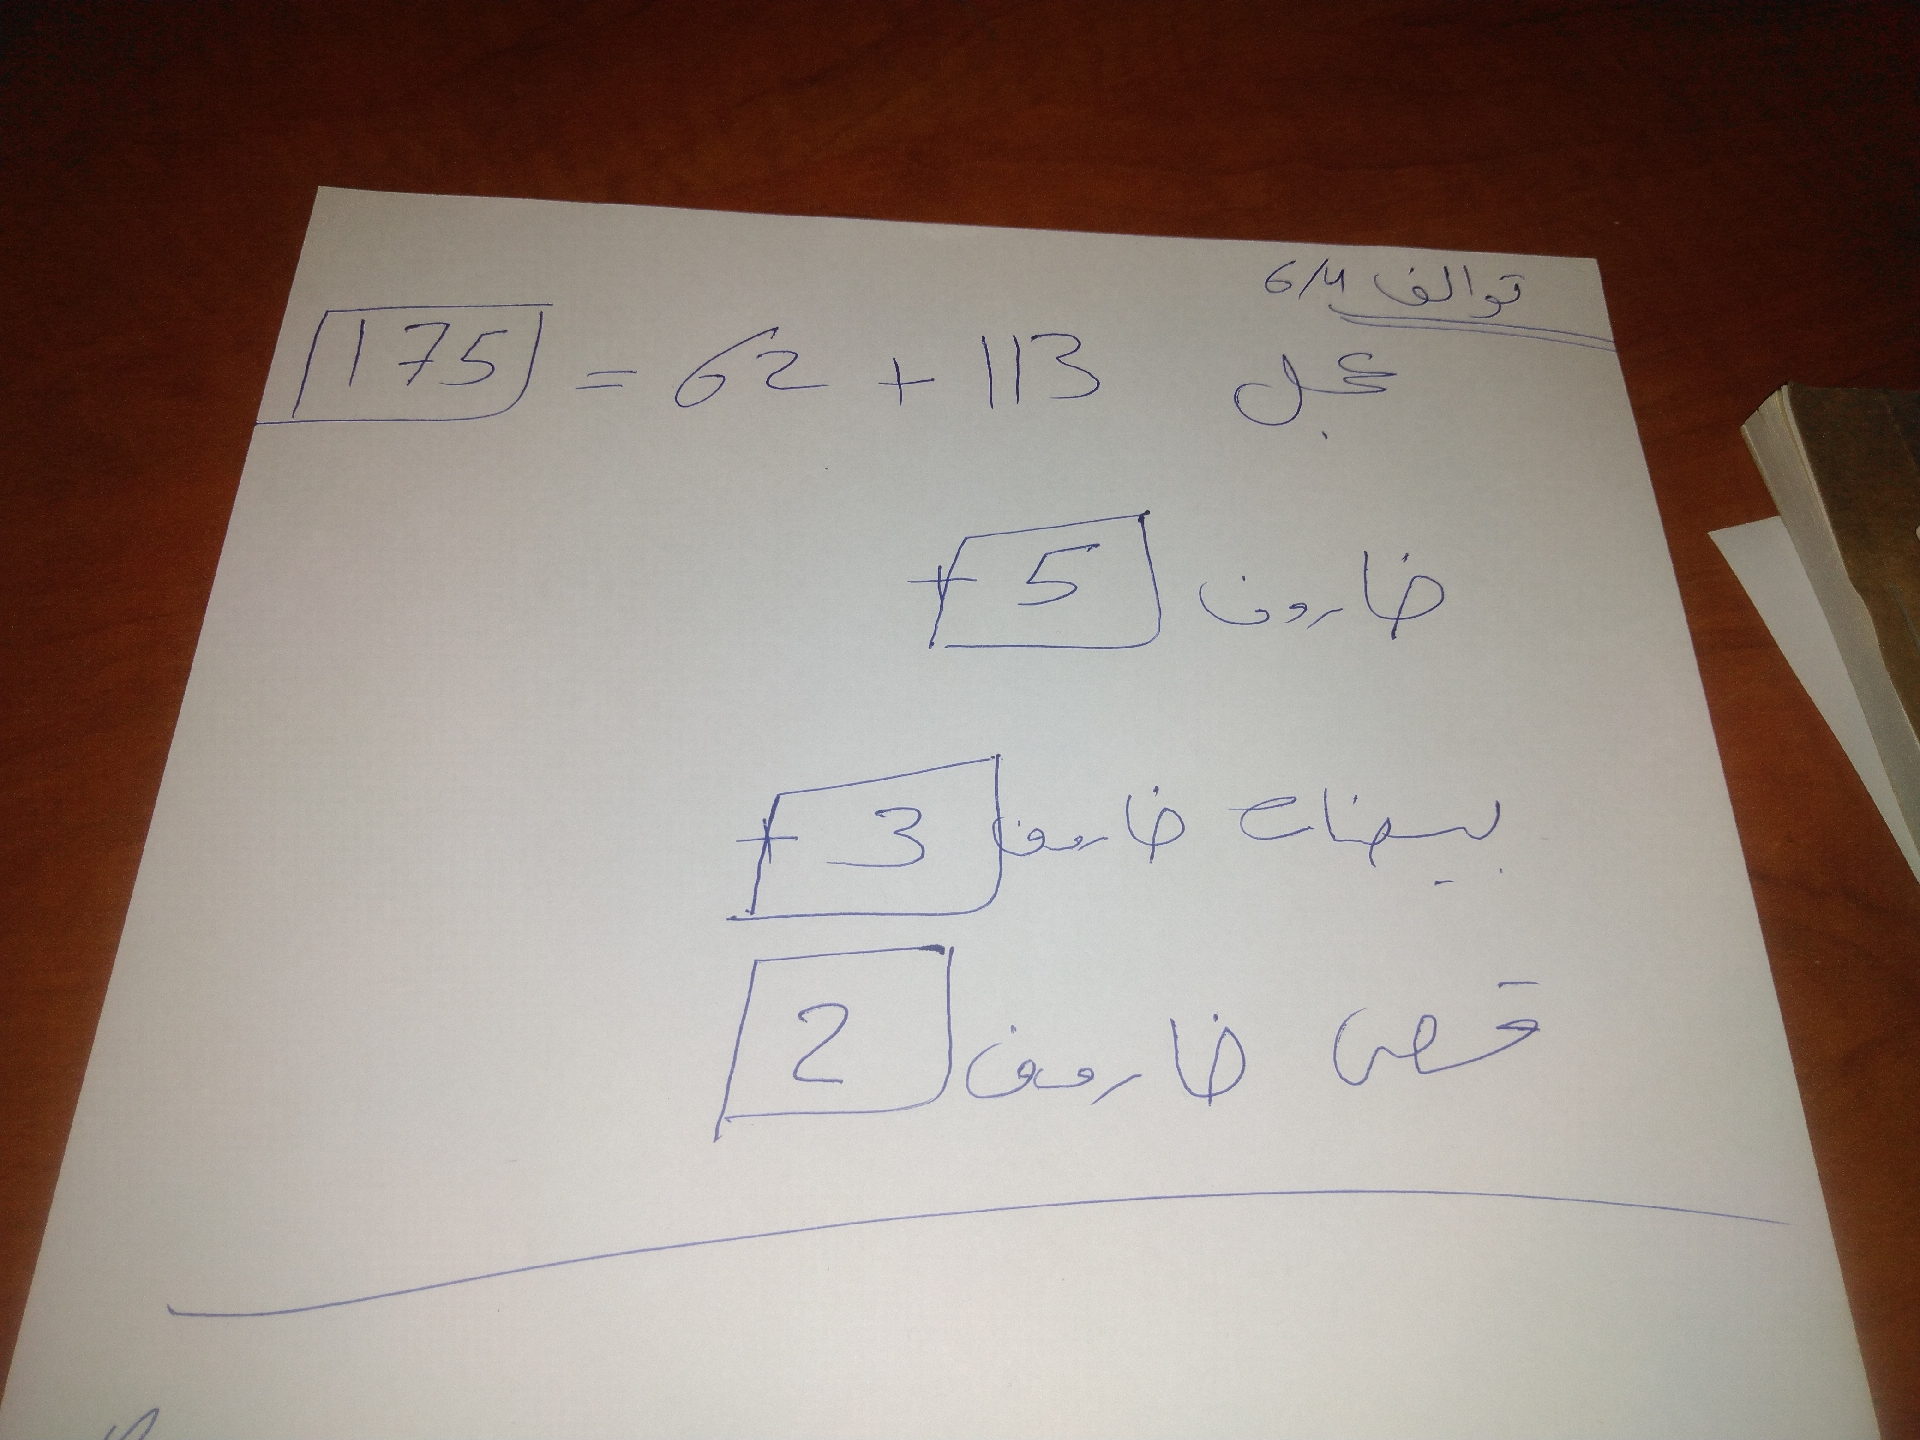 توالف 6/4
عجل 113 + 62 = 175
خاروف 5 +
بيضات خاروف 3 +
قص خاروف 2